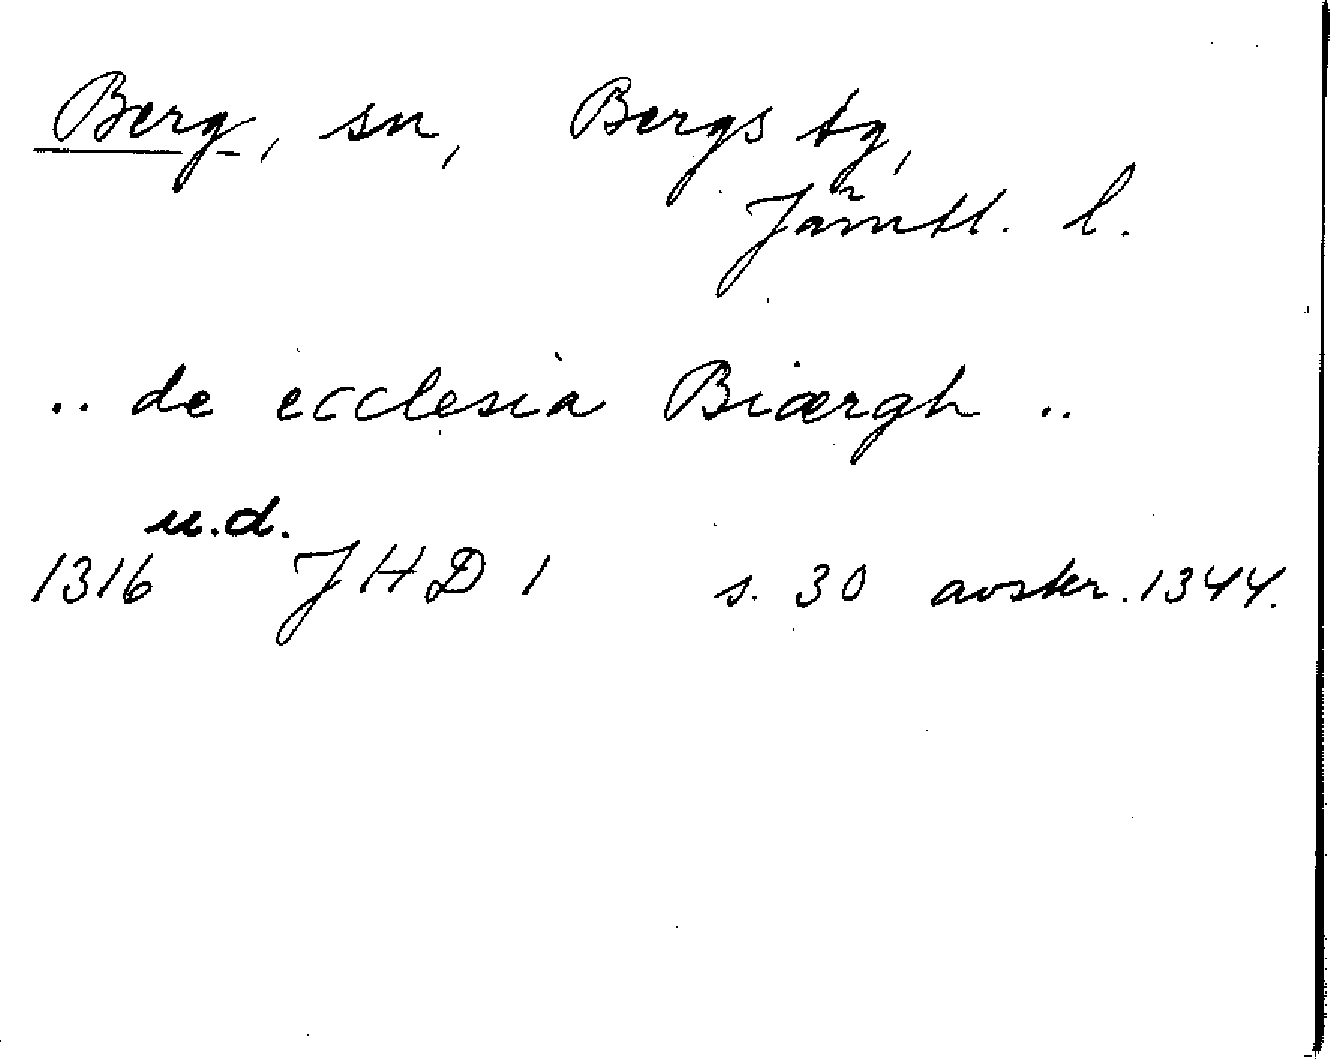 Berg, sn, Bergs tg,
Jämtl. l.
.. de ecclesia Biærgh ..
u.d.
1316 JHD 1 s. 30 avskr. 1344.